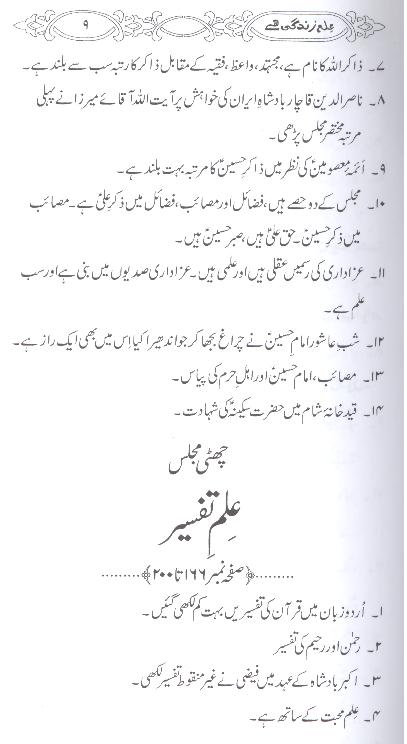 علم زندگی ہے ۹
۷۔ ذاکر اللہ کا نام ہے، مجتہد، واعظ، فقیہ کے مقابل ذاکر کا رتبہ سب سے بلند ہے۔
۸۔ ناصرالدین قاچار بادشاہِ ایران کی خواہش پر آیت اللہ آقائے میرزا نے پہلی
مرتبہ مختصر مجلس پڑھی۔
۹۔ آئمہ معصومینؑ کی نظر میں ذاکرِ حسینؑ کا مرتبہ بہت بلند ہے۔
۱۰۔ مجلس کے دو حصے ہیں، فضائل اور مصائب، فضائل میں ذکرِ علیؑ ہے۔ مصائب
میں ذکرِ حسینؑ۔ حق علیؑ ہیں، صبر حسینؑ ہیں۔
۱۱۔ عزاداری کی رسمیں عقلی ہیں اور علمی ہیں۔ عزاداری صدیوں میں بنی ہے اور سب
علم ہے۔
۱۲۔ شبِ عاشور امام حسینؑ نے چراغ بجھا کر جو اندھیرا کیا اِس میں بھی ایک راز ہے۔
۱۳۔ مصائب، امام حسینؑ اور اہلِ حرم کی پیاس۔
۱۴۔ قید خانۂ شام میں حضرت سکینہؑ کی شہادت۔
چھٹی مجلس
علمِ تفسیر
﴿صفحہ نمبر ۱۶۶ تا ۲۰۰﴾
۱۔ اُردو زبان میں قرآن کی تفسیریں بہت کم لکھی گئیں۔
۲۔ رحمٰن اور رحیم کی تفسیر
۳۔ اکبر بادشاہ کے عہد میں فیضی نے غیر منقوط تفسیر لکھی۔
۴۔ علم محبت کے ساتھ ہے۔